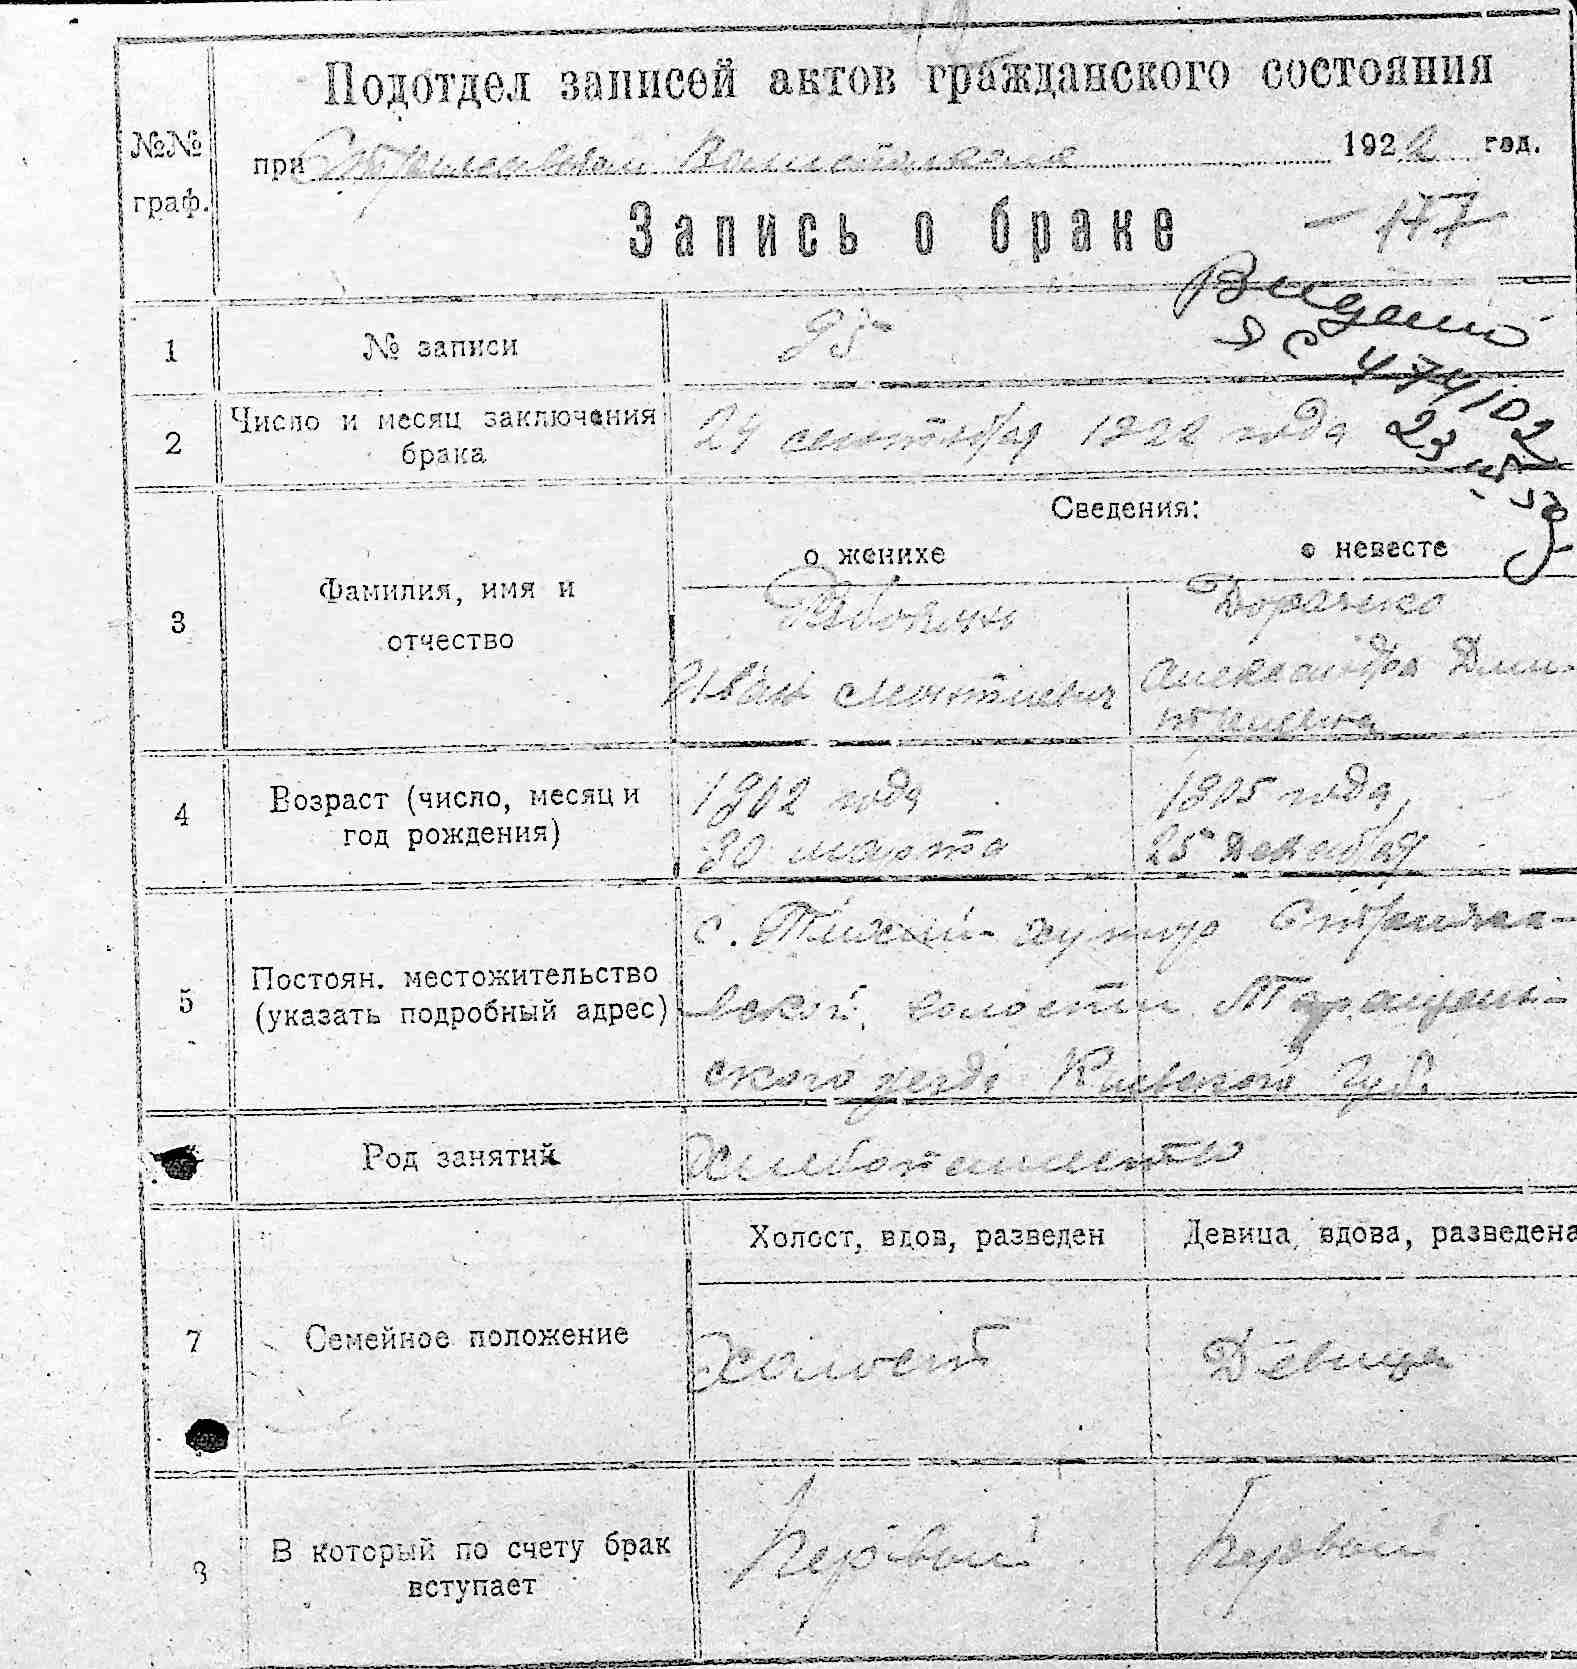 Подотдел записей актов гражданского состояния
№№ граф.
при 1922 год.
Запись о браке
— 177
1 № записи 95
2 Число и месяц заключения брака 24 сентября 1922 года
474102
Сведения:
о женихе о невесте
3 Фамилия, имя и отчество
Иван Леонтиевич
Александра Дми-
4 Возраст (число, месяц и год рождения)
1902 года 1905 года,
30 марта 25 декабря
5 Постоян. местожительство (указать подробный адрес)
с. хутор
вской волости Таращан-
ского уезда Киевской губ.
Род занятий Хлебопашеств
Холост, вдов, разведен Девица, вдова, разведена
7 Семейное положение Холост Девица
8 В который по счету брак вступает Первый Первый